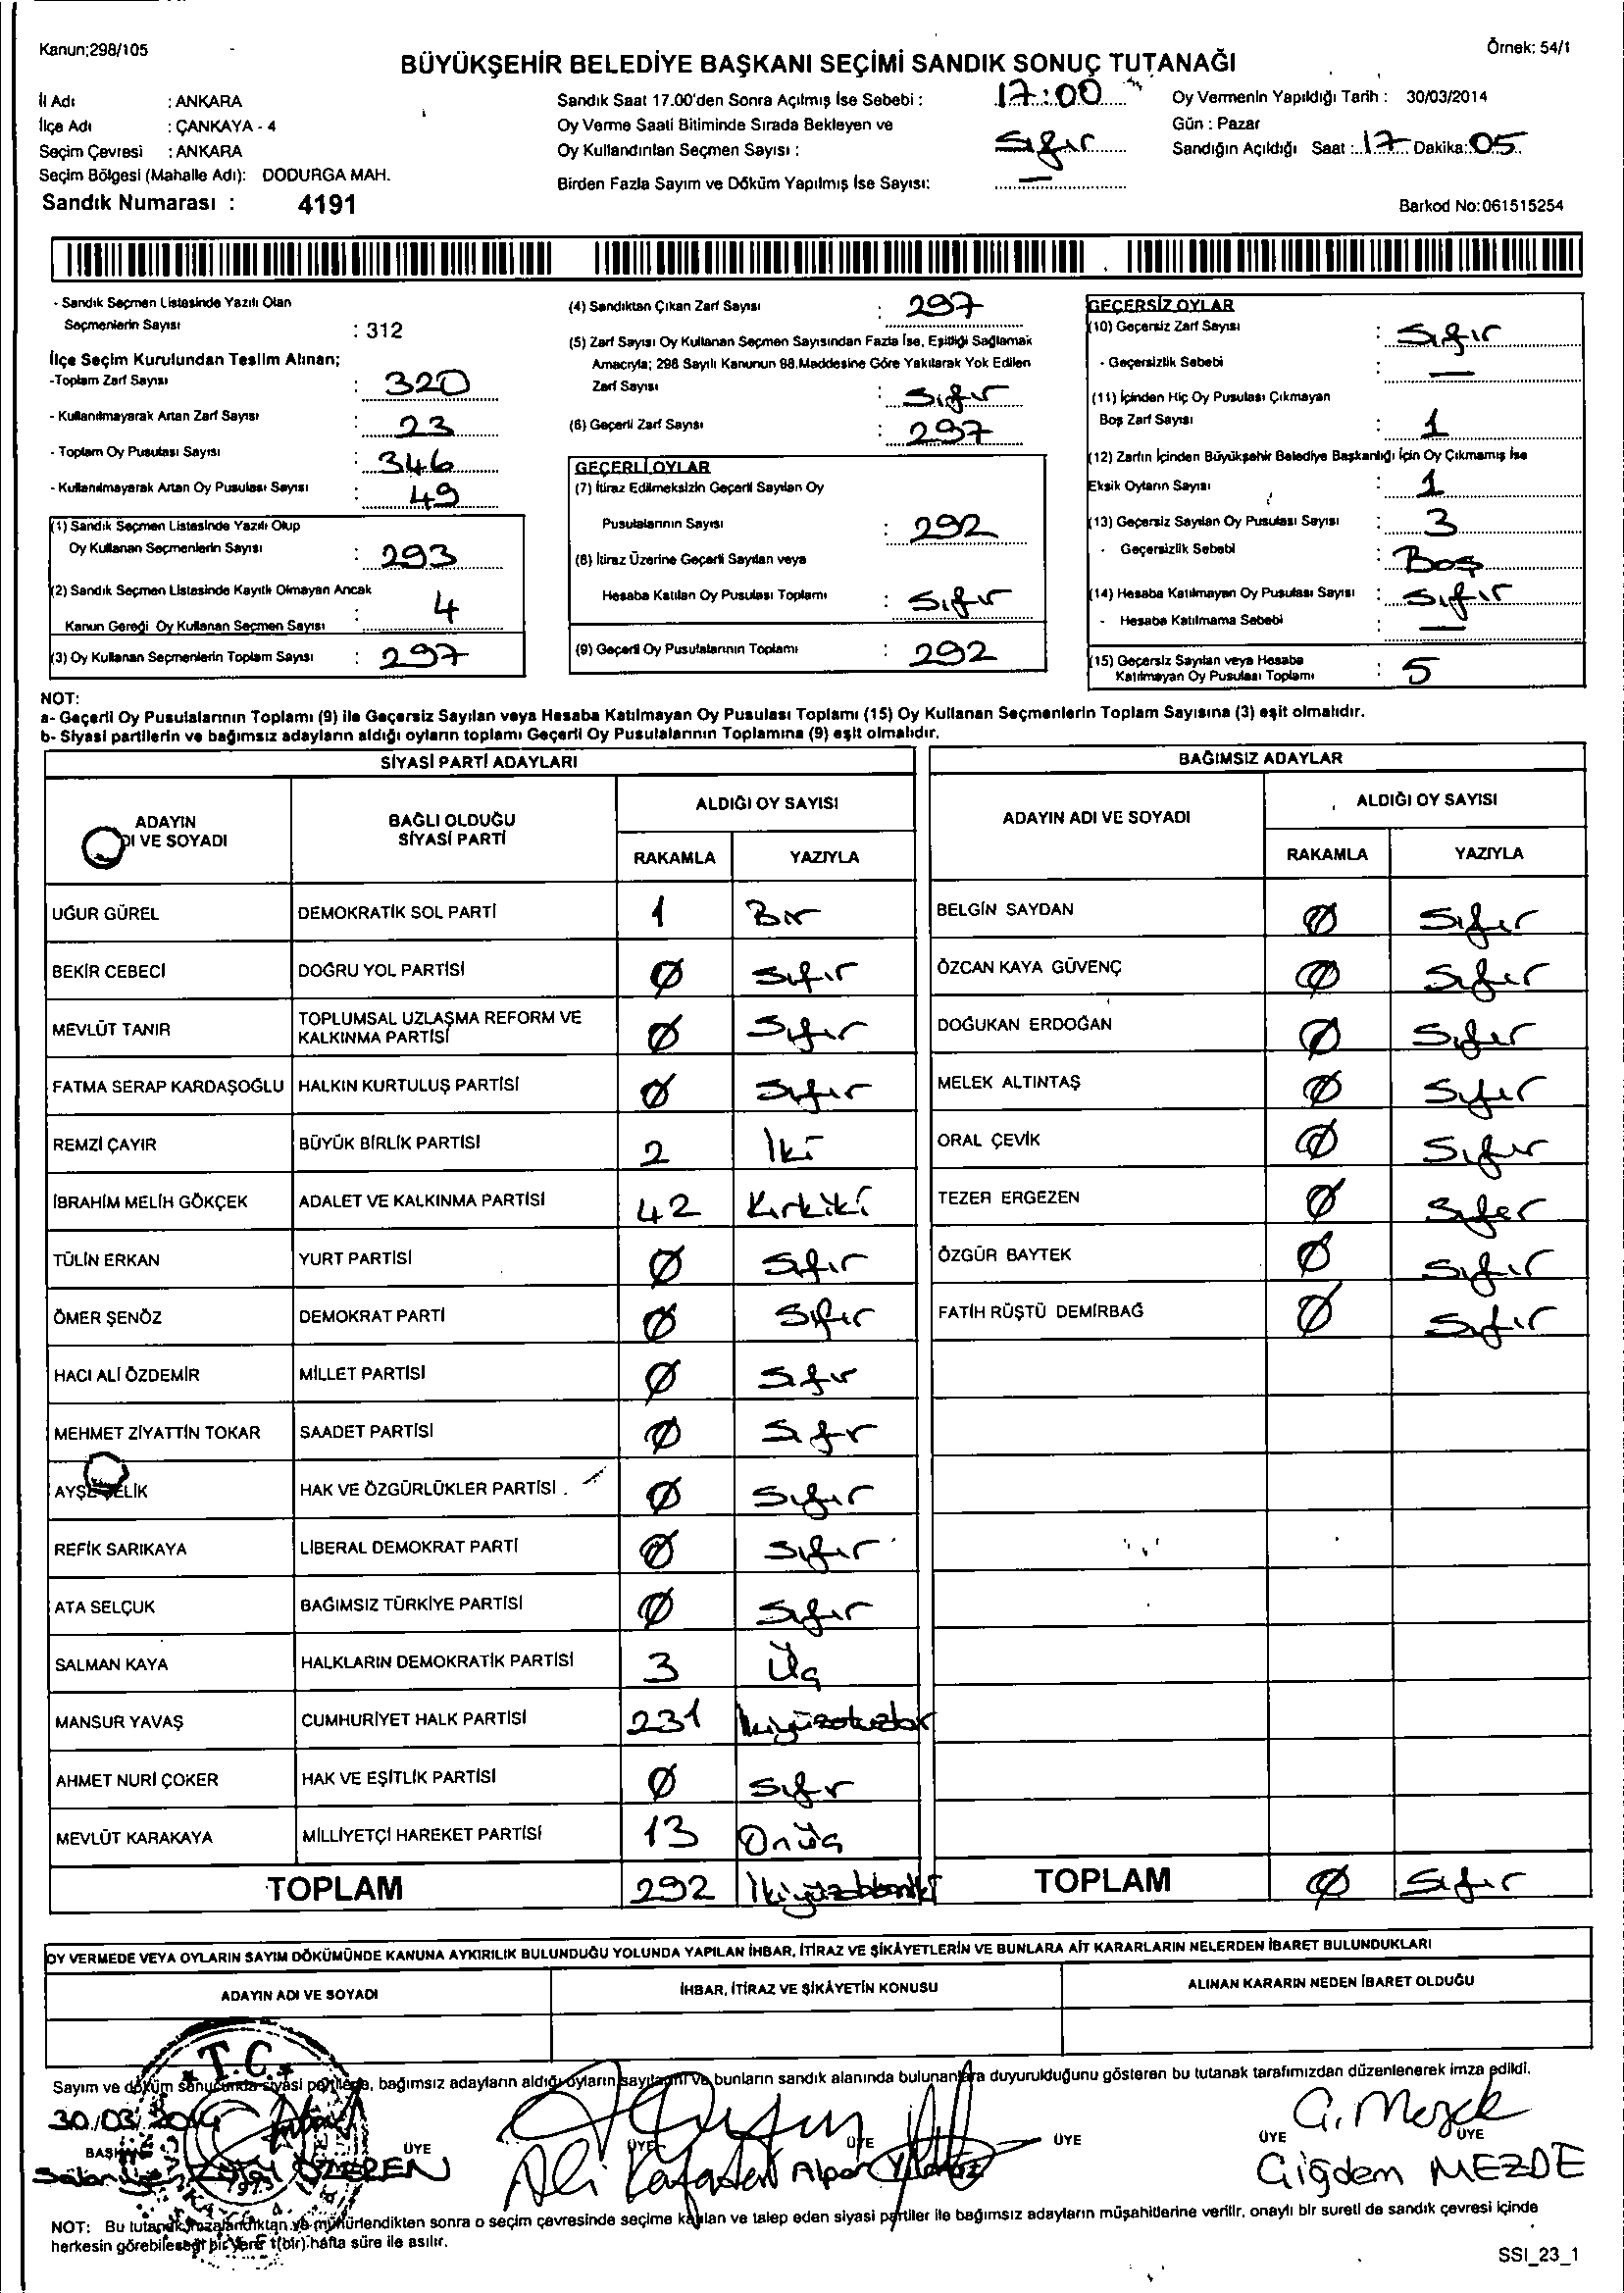 Kanun;298/105
Örnek: 54/1
BÜYÜKŞEHİR BELEDİYE BAŞKANI SEÇİMİ SANDIK SONUÇ TUTANAĞI
İl Adı : ANKARA
İlçe Adı : ÇANKAYA - 4
Seçim Çevresi : ANKARA
Seçim Bölgesi (Mahalle Adı): DODURGA MAH.
Sandık Numarası : 4191
Sandık Saat 17.00'den Sonra Açılmış İse Sebebi : 17:00
Oy Verme Saati Bitiminde Sırada Bekleyen ve
Oy Kullandırılan Seçmen Sayısı : Sıfır
Birden Fazla Sayım ve Döküm Yapılmış İse Sayısı: —
Oy Vermenin Yapıldığı Tarih : 30/03/2014
Gün : Pazar
Sandığın Açıldığı Saat : 17 Dakika: 05
Barkod No:061515254
- Sandık Seçmen Listesinde Yazılı Olan
Seçmenlerin Sayısı : 312
İlçe Seçim Kurulundan Teslim Alınan;
-Toplam Zarf Sayısı : 320
- Kullanılmayarak Artan Zarf Sayısı : 23
- Toplam Oy Pusulası Sayısı : 346
- Kullanılmayarak Artan Oy Pusulası Sayısı : 49
(1) Sandık Seçmen Listesinde Yazılı Olup
Oy Kullanan Seçmenlerin Sayısı : 293
(2) Sandık Seçmen Listesinde Kayıtlı Olmayan Ancak
Kanun Gereği Oy Kullanan Seçmen Sayısı : 4
(3) Oy Kullanan Seçmenlerin Toplam Sayısı : 297
(4) Sandıktan Çıkan Zarf Sayısı : 297
(5) Zarf Sayısı Oy Kullanan Seçmen Sayısından Fazla İse, Eşitliği Sağlamak
Amacıyla; 298 Sayılı Kanunun 98.Maddesine Göre Yakılarak Yok Edilen
Zarf Sayısı : Sıfır
(6) Geçerli Zarf Sayısı : 297
GEÇERLİ OYLAR
(7) İtiraz Edilmeksizin Geçerli Sayılan Oy
Pusulalarının Sayısı : 292
(8) İtiraz Üzerine Geçerli Sayılan veya
Hesaba Katılan Oy Pusulası Toplamı : Sıfır
(9) Geçerli Oy Pusulalarının Toplamı : 292
GEÇERSİZ OYLAR
(10) Geçersiz Zarf Sayısı : Sıfır
- Geçersizlik Sebebi : —
(11) İçinden Hiç Oy Pusulası Çıkmayan
Boş Zarf Sayısı : 1
(12) Zarfın İçinden Büyükşehir Belediye Başkanlığı İçin Oy Çıkmamış İse
Eksik Oyların Sayısı : 1
(13) Geçersiz Sayılan Oy Pusulası Sayısı : 3
- Geçersizlik Sebebi : Boş
(14) Hesaba Katılmayan Oy Pusulası Sayısı : Sıfır
- Hesaba Katılmama Sebebi : —
(15) Geçersiz Sayılan veya Hesaba
Katılmayan Oy Pusulası Toplamı : 5
NOT:
a- Geçerli Oy Pusulalarının Toplamı (9) ile Geçersiz Sayılan veya Hesaba Katılmayan Oy Pusulası Toplamı (15) Oy Kullanan Seçmenlerin Toplam Sayısına (3) eşit olmalıdır.
b- Siyasi partilerin ve bağımsız adayların aldığı oyların toplamı Geçerli Oy Pusulalarının Toplamına (9) eşit olmalıdır.
SİYASİ PARTİ ADAYLARI
ADAYIN
DI VE SOYADI
BAĞLI OLDUĞU
SİYASİ PARTİ
ALDIĞI OY SAYISI
RAKAMLA YAZIYLA
UĞUR GÜREL DEMOKRATİK SOL PARTİ 1 Bir
BEKİR CEBECİ DOĞRU YOL PARTİSİ Ø Sıfır
MEVLÜT TANIR TOPLUMSAL UZLAŞMA REFORM VE
KALKINMA PARTİSİ Ø Sıfır
FATMA SERAP KARDAŞOĞLU HALKIN KURTULUŞ PARTİSİ Ø Sıfır
REMZİ ÇAYIR BÜYÜK BİRLİK PARTİSİ 2 İki
İBRAHİM MELİH GÖKÇEK ADALET VE KALKINMA PARTİSİ 42 Kırkiki
TÜLİN ERKAN YURT PARTİSİ Ø Sıfır
ÖMER ŞENÖZ DEMOKRAT PARTİ Ø Sıfır
HACI ALİ ÖZDEMİR MİLLET PARTİSİ Ø Sıfır
MEHMET ZİYATTİN TOKAR SAADET PARTİSİ Ø Sıfır
AYŞE ÇELİK HAK VE ÖZGÜRLÜKLER PARTİSİ Ø Sıfır
REFİK SARIKAYA LİBERAL DEMOKRAT PARTİ Ø Sıfır
ATA SELÇUK BAĞIMSIZ TÜRKİYE PARTİSİ Ø Sıfır
SALMAN KAYA HALKLARIN DEMOKRATİK PARTİSİ 3 Üç
MANSUR YAVAŞ CUMHURİYET HALK PARTİSİ 231 İkiyüzotuzbir
AHMET NURİ ÇOKER HAK VE EŞİTLİK PARTİSİ Ø Sıfır
MEVLÜT KARAKAYA MİLLİYETÇİ HAREKET PARTİSİ 13 Onüç
TOPLAM 292 İkiyüzdoksaniki
BAĞIMSIZ ADAYLAR
ADAYIN ADI VE SOYADI
ALDIĞI OY SAYISI
RAKAMLA YAZIYLA
BELGİN SAYDAN Ø Sıfır
ÖZCAN KAYA GÜVENÇ Ø Sıfır
DOĞUKAN ERDOĞAN Ø Sıfır
MELEK ALTINTAŞ Ø Sıfır
ORAL ÇEVİK Ø Sıfır
TEZER ERGEZEN Ø Sıfır
ÖZGÜR BAYTEK Ø Sıfır
FATİH RÜŞTÜ DEMİRBAĞ Ø Sıfır
TOPLAM Ø Sıfır
OY VERMEDE VEYA OYLARIN SAYIM DÖKÜMÜNDE KANUNA AYKIRILIK BULUNDUĞU YOLUNDA YAPILAN İHBAR, İTİRAZ VE ŞİKÂYETLERİN VE BUNLARA AİT KARARLARIN NELERDEN İBARET BULUNDUKLARI
ADAYIN ADI VE SOYADI
İHBAR, İTİRAZ VE ŞİKÂYETİN KONUSU
ALINAN KARARIN NEDEN İBARET OLDUĞU
T.C.
Sayım ve döküm sonucunda siyasi partilere, bağımsız adayların aldığı oyların sayılarını ve bunların sandık alanında bulunanlara duyurulduğunu gösteren bu tutanak tarafımızdan düzenlenerek imza edildi.
30/03/2014
G. Mezde
BAŞKAN ÜYE ÜYE ÜYE ÜYE ÜYE ÜYE
ÖZEREN Ali Alper Yılmaz Çiğdem MEZDE
NOT: Bu tutanak imzalandıktan ve mühürlendikten sonra o seçim çevresinde seçime katılan ve talep eden siyasi partiler ile bağımsız adayların müşahitlerine verilir, onaylı bir sureti de sandık çevresi içinde
herkesin görebileceği bir yere 1(bir) hafta süre ile asılır.
SSI_23_1